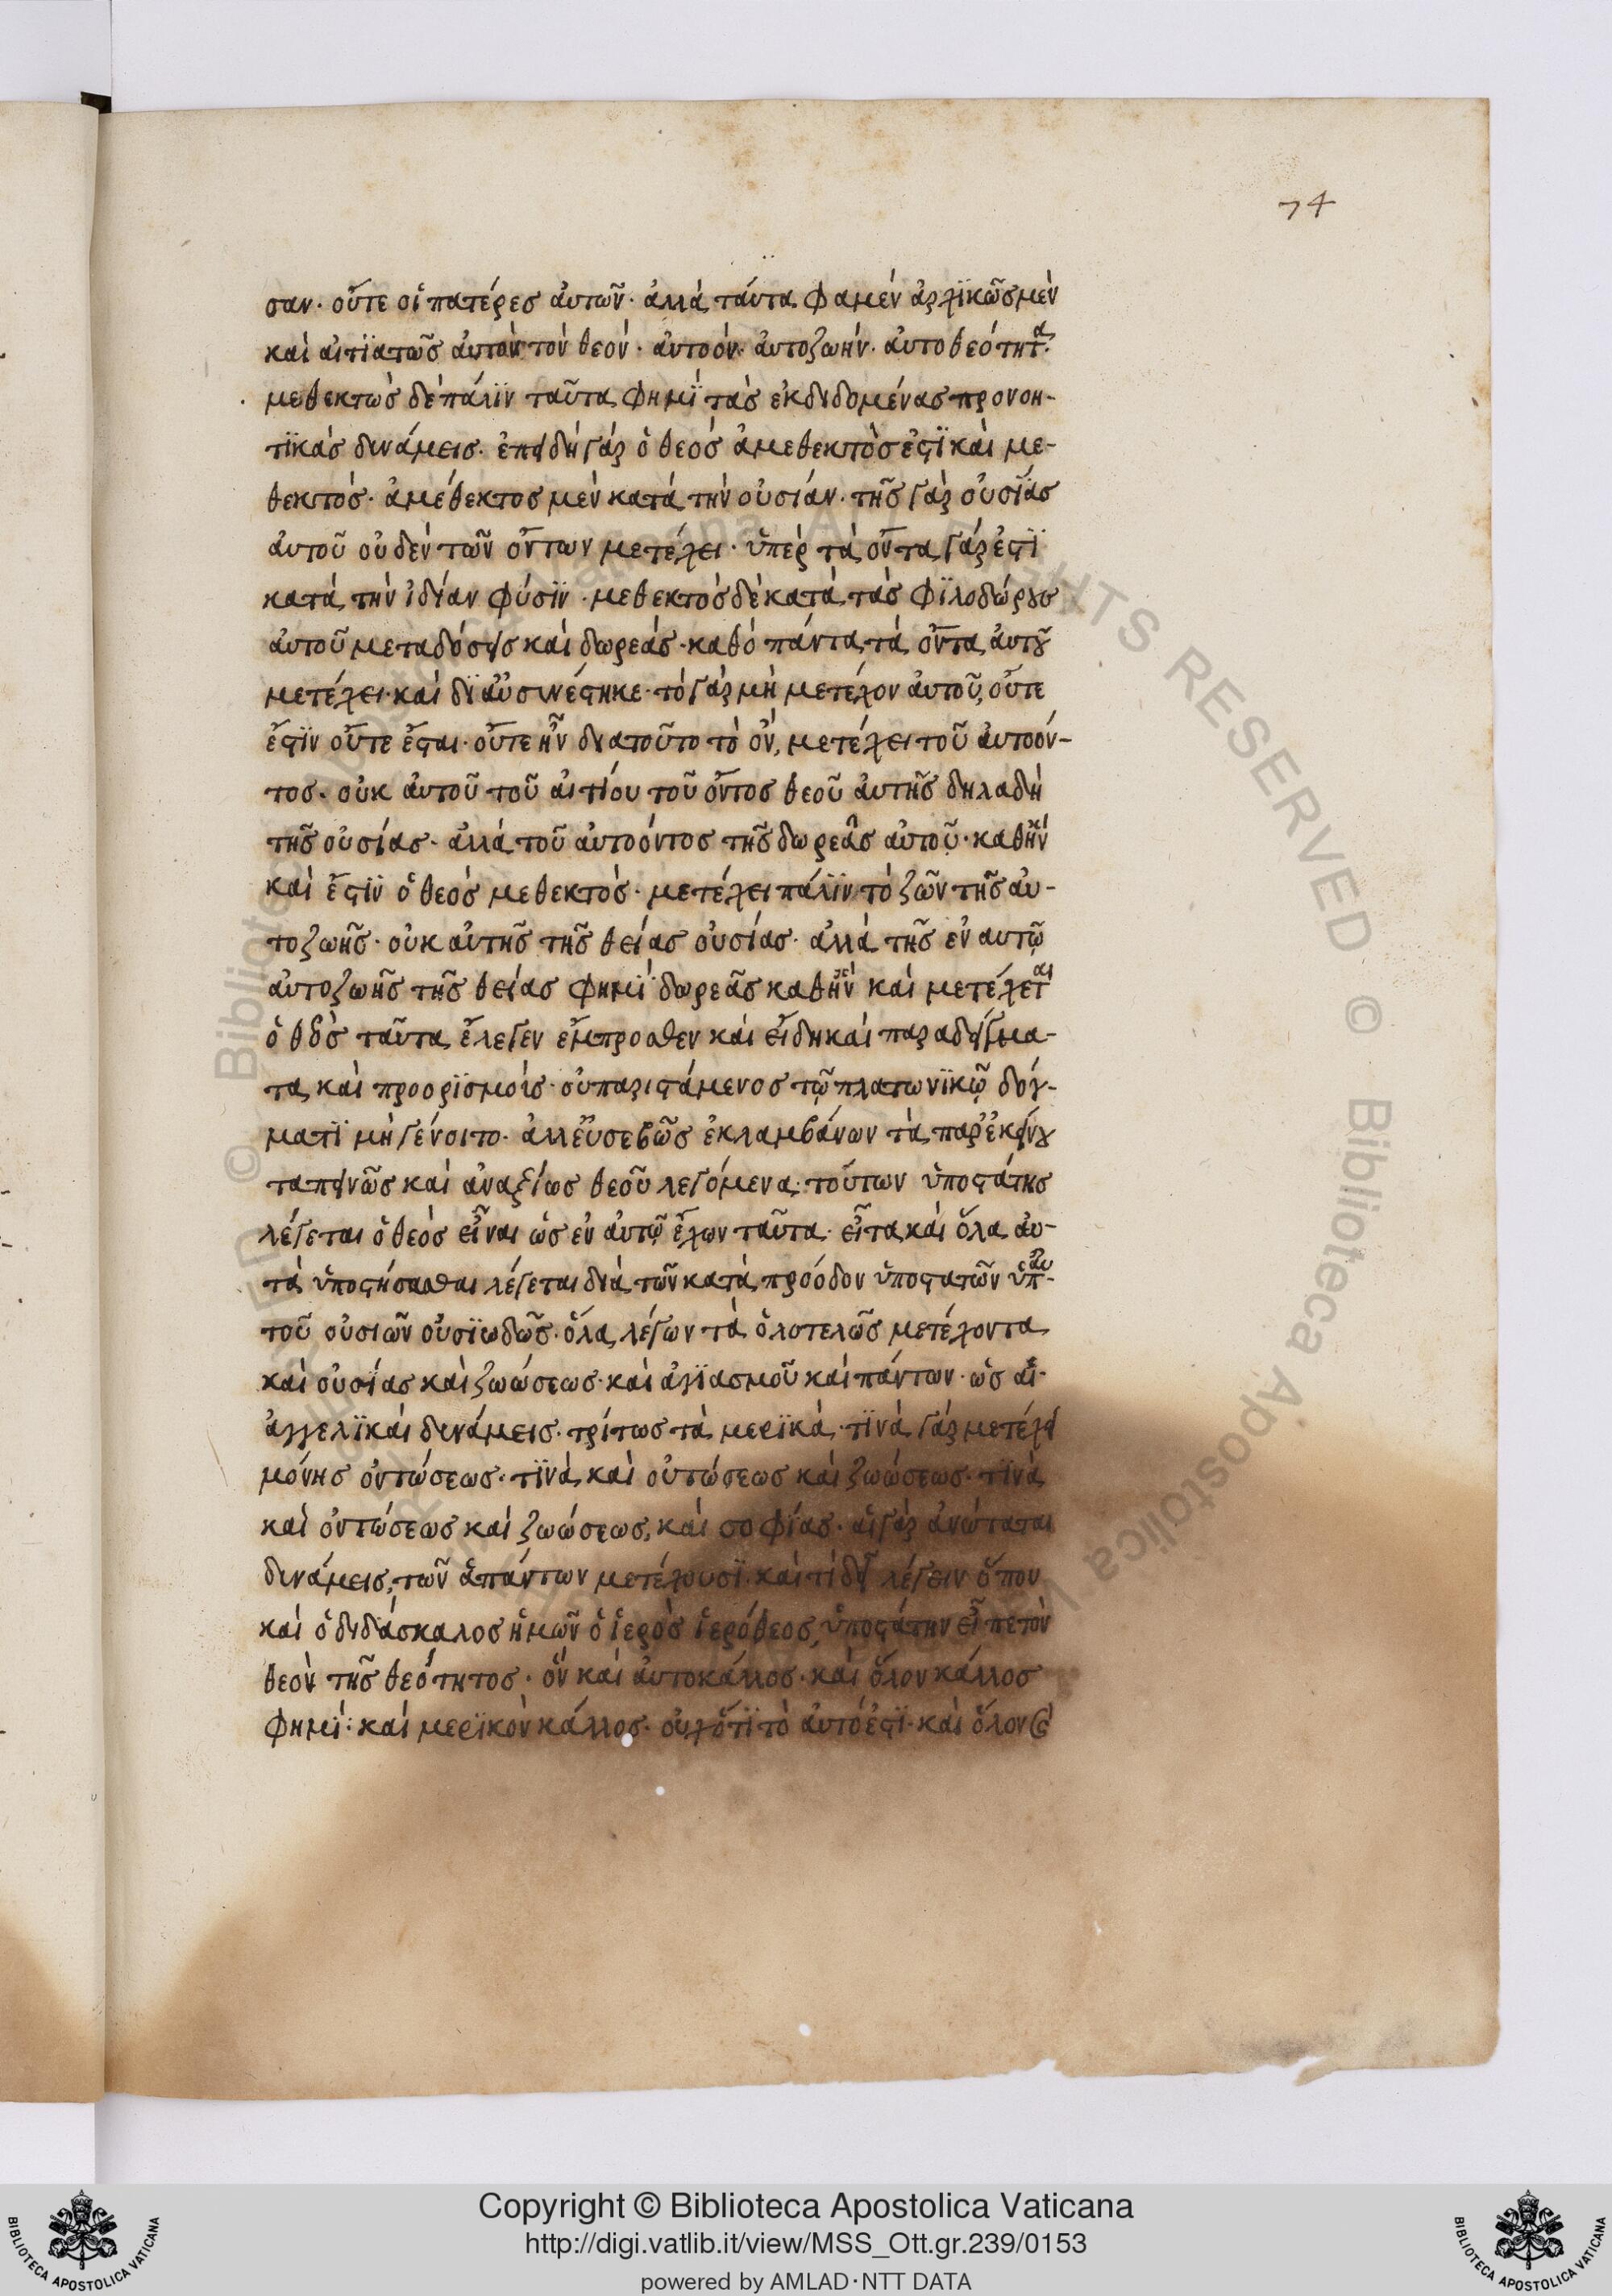 74
σαν· οὔτε οἱ πατέρες ἀυτῶν· ἀλλὰ ταύτα φαμὲν ἀρχϊκῶς μὲν
καὶ αἰτϊατῶς ἀυτὸν τὸν θεόν· ἀυτοόν· ἀυτοζωήν· ἀυτοθεότητα·
μεθεκτῶς δὲ πάλϊν ταῦτα φημῒ τὰς ἐκδιδομένας προνοη-
τϊκὰς δυνάμεις· ἐπειδὴ γὰρ ὁ θεὸς ἀμεθεκτός ἐστϊ καὶ με-
θεκτός· ἀμέθεκτος μὲν κατὰ τὴν οὐσίαν· τῆς γὰρ οὐσίας
ἀυτοῦ οὐδὲν τῶν ὄντων μετέχει· ὑπὲρ τὰ ὄντα γάρ ἐστϊ
κατὰ τὴν ἰδίαν φύσϊν· μεθεκτὸς δὲ κατὰ τὰς φϊλοδώρους
ἀυτοῦ μεταδόσεις καὶ δωρεάς· καθὸ πάντα τὰ ὄντα ἀυτοῦ
μετέχει· καὶ δι αὐ συνέστηκε· τὸ γὰρ μὴ μετέχον ἀυτοῦ, οὔτε
ἔστϊν οὔτε ἔσται· οὔτε ἦν διατοῦτο τὸ ὄν, μετέχει τοῦ ἀυτοόν-
τος· οὐκ ἀυτοῦ τοῦ ἀιτίου τοῦ ὄντος θεοῦ ἀυτῆς δηλαδὴ
τῆς οὐσίας· ἀλλὰ τοῦ ἀυτοόντος τῆς δωρεᾶς ἀυτοῦ· καθἣν
καὶ ἔστϊν ὁ θεὸς μεθεκτός· μετέχει πάλϊν τὸ ζῶν τῆς ἀυ-
τοζωῆς· οὐκ ἀυτῆς τῆς θείας οὐσίας· ἀλλὰ τῆς ἐν αυτῷ
ἀυτοζωῆς τῆς θείας φημῒ δωρεᾶς καθἣν καὶ μετέχεται
ὁ θεὸς ταῦτα ἔλεγεν ἔμπροσθεν καὶ εἴδη καὶ παραδείγμα-
τα καὶ προορϊσμοίς· οὐ παριστάμενος τῷ πλατωνϊκῷ δόγ-
ματϊ μὴ γένοιτο· ἀλλ εὐσεβῶς ἐκλαμβάνων τὰ παρ ἐκείνου
ταπεινῶς καὶ ἀναξίως θεοῦ λεγόμενα· τούτων ὑποστάτης
λέγεται ὁ θεὸς εἶναι ὡς ἐν ἀυτῷ ἔχων ταῦτα· εἶτα καὶ ὅλα ἀυ-
τὰ ὑποστήσασθαι λέγεται διὰ τῶν κατὰ πρόοδον ὑποστατῶν ὑπ αυ-
τοῦ οὐσιῶν οὐσϊωδῶς· ὅλα, λέγων τὰ ὁλοτελῶς μετέχοντα
καὶ οὐσίας καὶ ζωώσεως· καὶ ἁγϊασμοῦ καὶ πάντων· ὡς αἱ
ἀγγελϊκαὶ δυνάμεις· τρίτως τὰ μερϊκά· τϊνὰ γὰρ μετέχει
μόνης ὀντώσεως· τϊνὰ καὶ οὐτώσεως καὶ ζωώσεως· τϊνὰ
καὶ ὀντώσεως καὶ ζωώσεως, καὶ σοφίας· αἱ γὰρ ἀνώταται
δυνάμεις, τῶν ἁπάντων μετέχουσϊ· καὶ τί δεῖ λέγειν ὅπου
καὶ ὁ διδάσκαλος ἡμῶν ὁ ἱερὸς ἱερόθεος, ὑποστάτην εἶπε τὸν
θεὸν τῆς θεότητος· ὃν καὶ ἀυτοκάλλος· καὶ ὅλον κάλλος
φημῒ· καὶ μερϊκὸν κάλλος· οὐχ ὅτϊ τὸ ἀυτό ἐστϊ· καὶ ὅλον καὶ
Copyright © Biblioteca Apostolica Vaticana
http://digi.vatlib.it/view/MSS_Ott.gr.239/0153
powered by AMLAD·NTT DATA
BIBLIOTECA APOSTOLICA VATICANA
BIBLIOTECA APOSTOLICA VATICANA